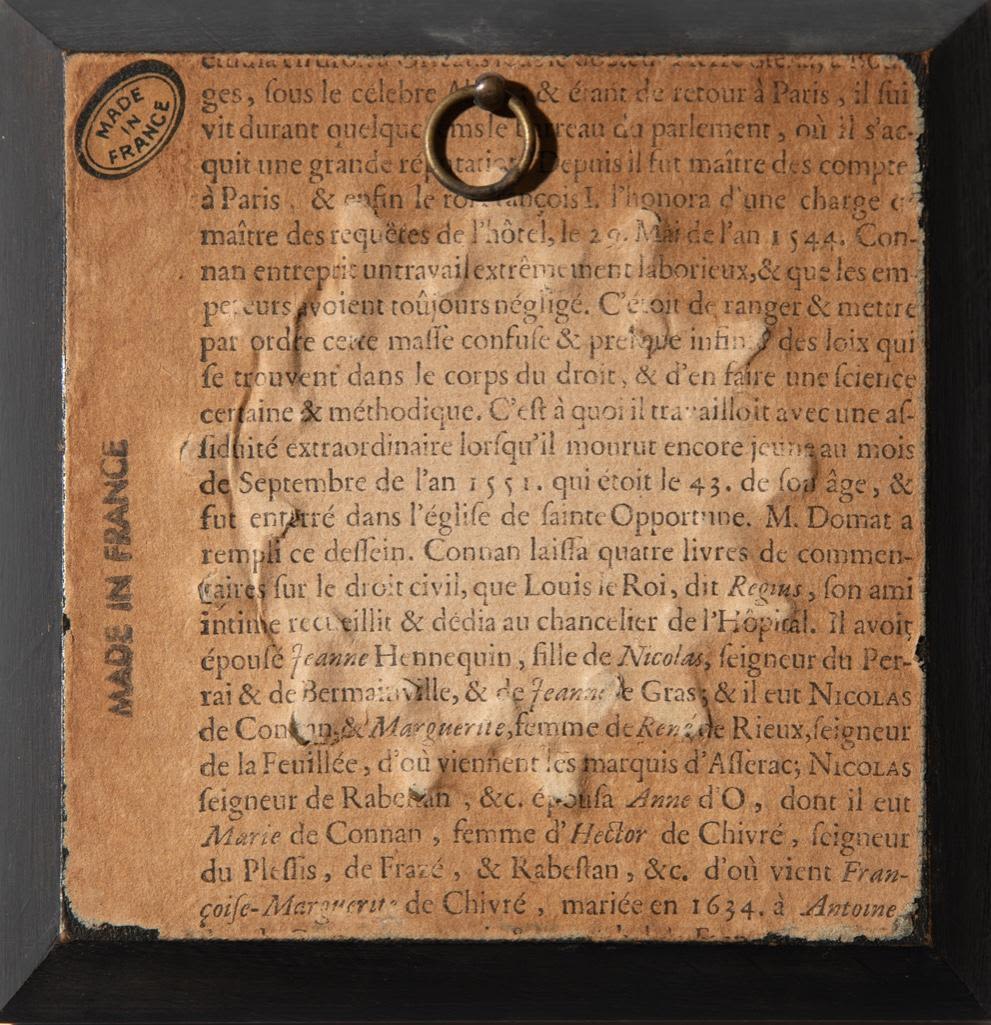 MADE
IN
FRANCE
MADE IN FRANCE
ges, ſous le célebre & étant de retour à Paris, il ſui
vit durant quelque ms le barreau du parlement, où il s'ac-
quit une grande réputation Depuis il fut maître des compte
à Paris, & enfin le roi François I. l'honora d'une charge
maître des requêtes de l'hôtel, le 29. Mai de l'an 1544. Con-
nan entreprit un travail extrêmement laborieux, & que les em-
pereurs avoient toûjours négligé. C'étoit de ranger & mettre
par ordre cette maſſe confuſe & preſque infinie des loix qui
ſe trouvent dans le corps du droit, & d'en faire une ſcience
certaine & méthodique. C'eſt à quoi il travailloit avec une aſ-
ſiduité extraordinaire lorſqu'il mourut encore jeune au mois
de Septembre de l'an 1551. qui étoit le 43. de ſon âge, &
fut enterré dans l'égliſe de ſainte Opportune. M. Domat a
rempli ce deſſein. Connan laiſſa quatre livres de commen-
taires ſur le droit civil, que Louis le Roi, dit Regius, ſon ami
intime recueillit & dédia au chancelier de l'Hôpital. Il avoit
épouſé Jeanne Hennequin, fille de Nicolas, ſeigneur du Per-
rai & de Bermainville, & de Jeanne le Gras; & il eut NICOLAS
de Connan, & Marguerite, femme de René de Rieux, ſeigneur
de la Feuillée, d'où viennent les marquis d'Aſſerac; NICOLAS
ſeigneur de Rabeſtan, &c. épouſa Anne d'O, dont il eut
Marie de Connan, femme d'Hector de Chivré, ſeigneur
du Pleſſis, de Frazé, & Rabeſtan, &c. d'où vient Fran-
çoiſe-Marguerite de Chivré, mariée en 1634. à Antoine